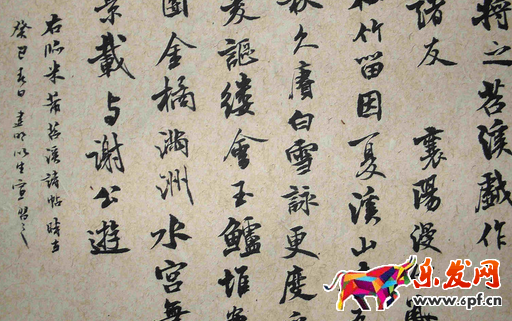 將之苕溪戲作
諸友 襄陽漫仕
松竹留因夏溪山
秋久賡白雪詠更度
菱謳縷會玉鱸堆案
團金橘滿洲水宮無
景載与謝公遊
右臨米芾苕溪詩帖 時在
癸巳春日
乐发网
www.6pf.cn